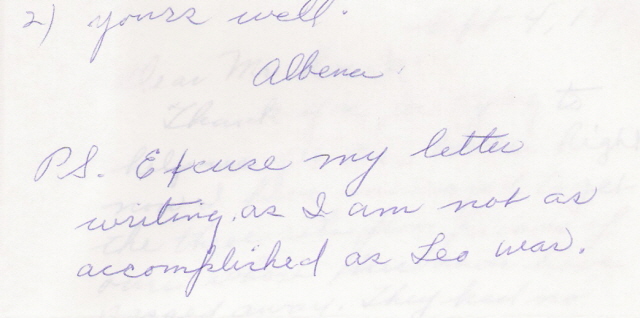 2) yours well.
Albena
P.S. Excuse my letter
writing, as I am not as
accomplished as Leo was.